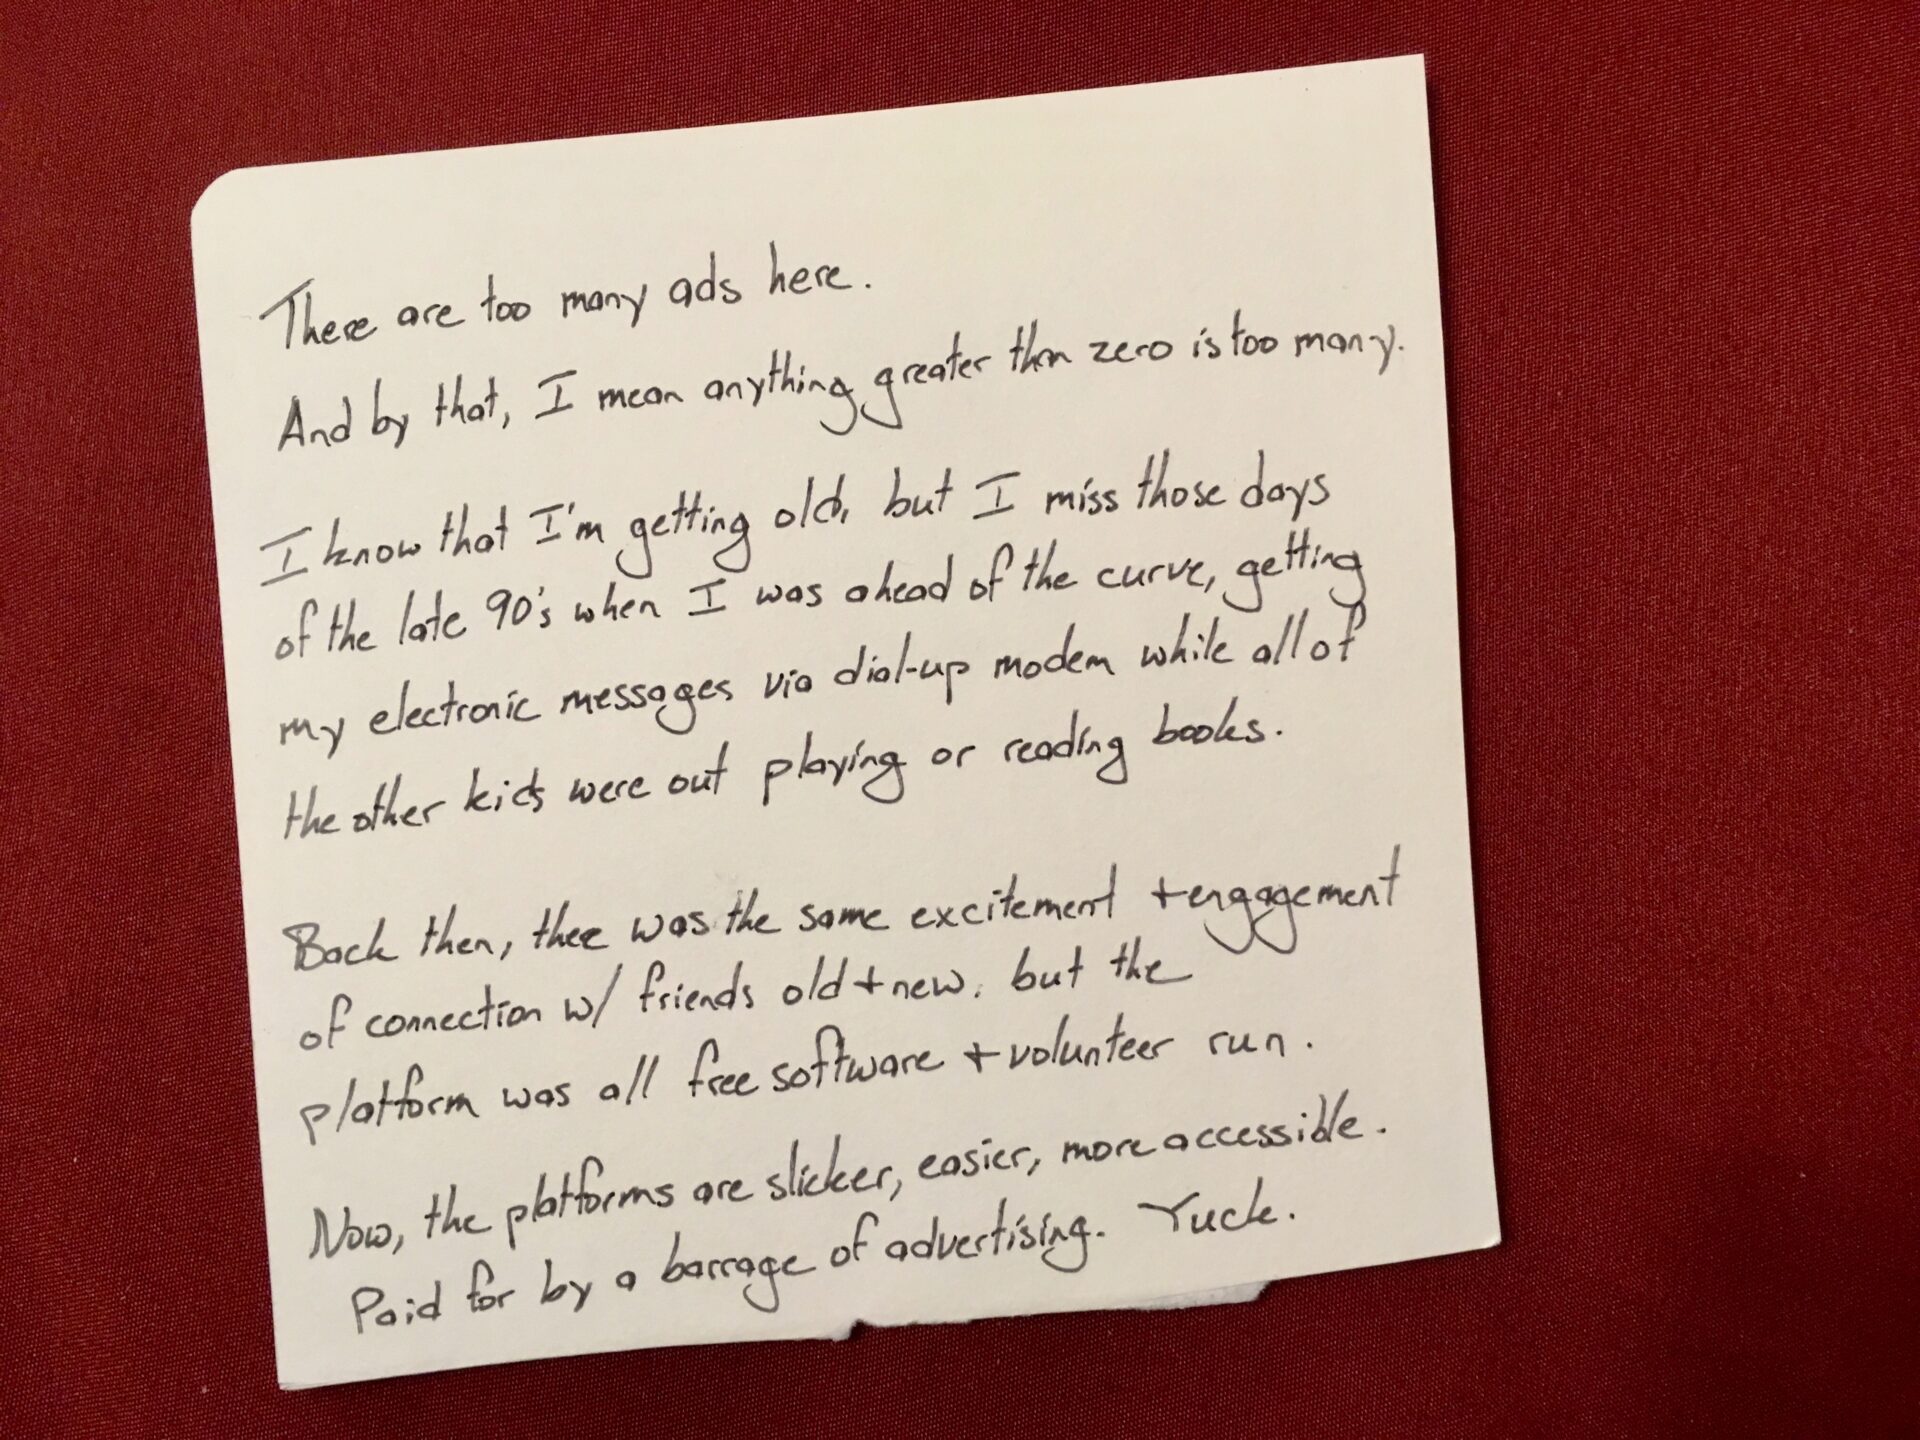 There are too many ads here.
And by that, I mean anything greater than zero is too many.
I know that I'm getting old, but I miss those days
of the late 90's when I was ahead of the curve, getting
my electronic messages via dial-up modem while all of
the other kids were out playing or reading books.
Back then, thee was the same excitement + engagement
of connection w/ friends old + new. but the
platform was all free software + volunteer run.
Now, the platforms are slicker, easier, more accessible.
Paid for by a barrage of advertising. Yuck.